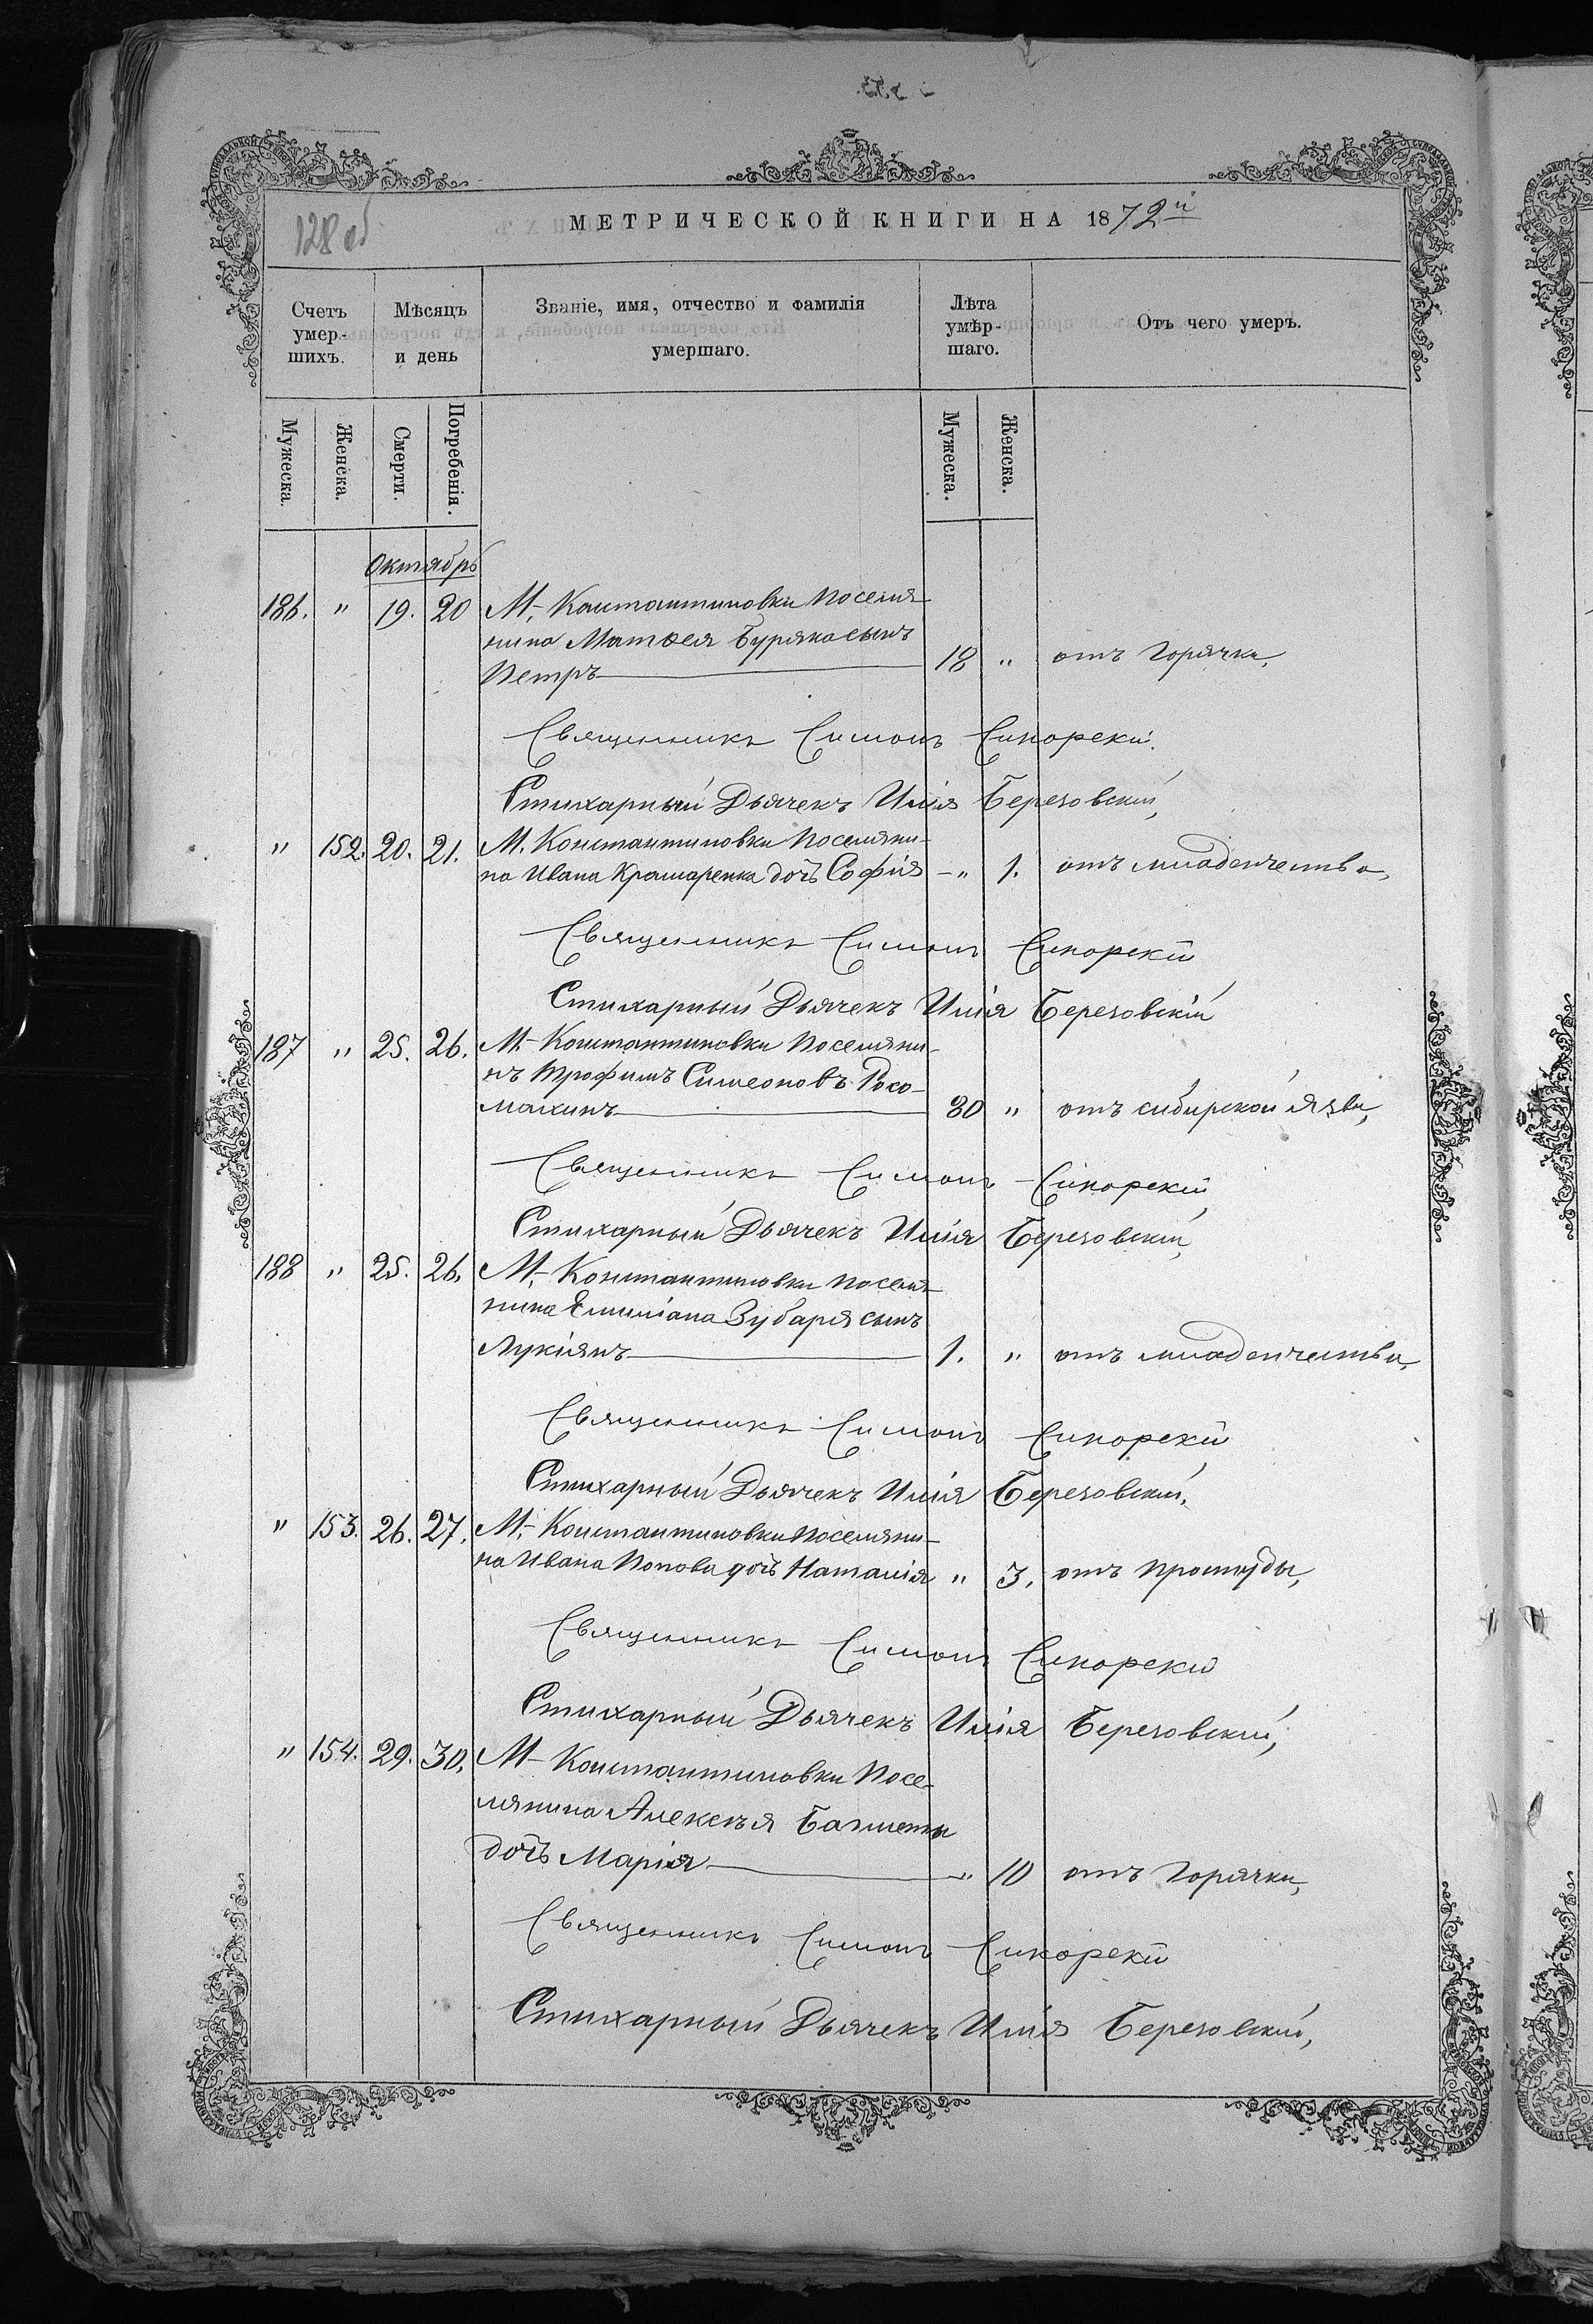 128 об
МЕТРИЧЕСКОЙ КНИГИ НА 1872й
Счетъ умер-шихъ.
Мѣсяцъ и день
Званіе, имя, отчество и фамилія умершаго.
Лѣта умѣр-шаго.
Отъ чего умеръ.
Мужеска.
Женска.
Смерти.
Погребенія.
Мужеска.
Женска.
Октябрь
186. " 19. 20 М. Константиновки поселя-
нина Матѳея Буряка сынъ
Петръ 18 " отъ горячки,
Священникъ Симонъ Сикорскій.
Стихарный Дьячекъ Илія Березовскій,
" 152. 20. 21. М. Константиновки поселяни-
на Ивана Крамаренка дочь Софія " 1. отъ младенчества,
Священникъ Симонъ Сикорскій
Стихарный Дьячекъ Илія Березовскій
187 " 25. 26. М. Константиновки поселяни-
нъ Трофимъ Симеоновъ Росо-
махинъ 80 " отъ сибирской язвы,
Священникъ Симонъ Сикорскій
Стихарный Дьячекъ Илія Березовскій,
188 " 25. 26. М. Константиновки поселя-
нина Емиліана Зубаря сынъ
Лукіянъ 1. " отъ младенчества,
Священникъ Симонъ Сикорскій
Стихарный Дьячекъ Илія Березовскій,
" 153. 26. 27. М. Константиновки поселяни-
на Ивана Попова дочь Наталія " 3. отъ простуды,
Священникъ Симонъ Сикорскій
Стихарный Дьячекъ Илія Березовскій,
" 154. 29. 30. М. Константиновки посе-
лянина Алексѣя
дочь Марія " 10 отъ горячки,
Священникъ Симонъ Сикорскій
Стихарный Дьячекъ Илія Березовскій,